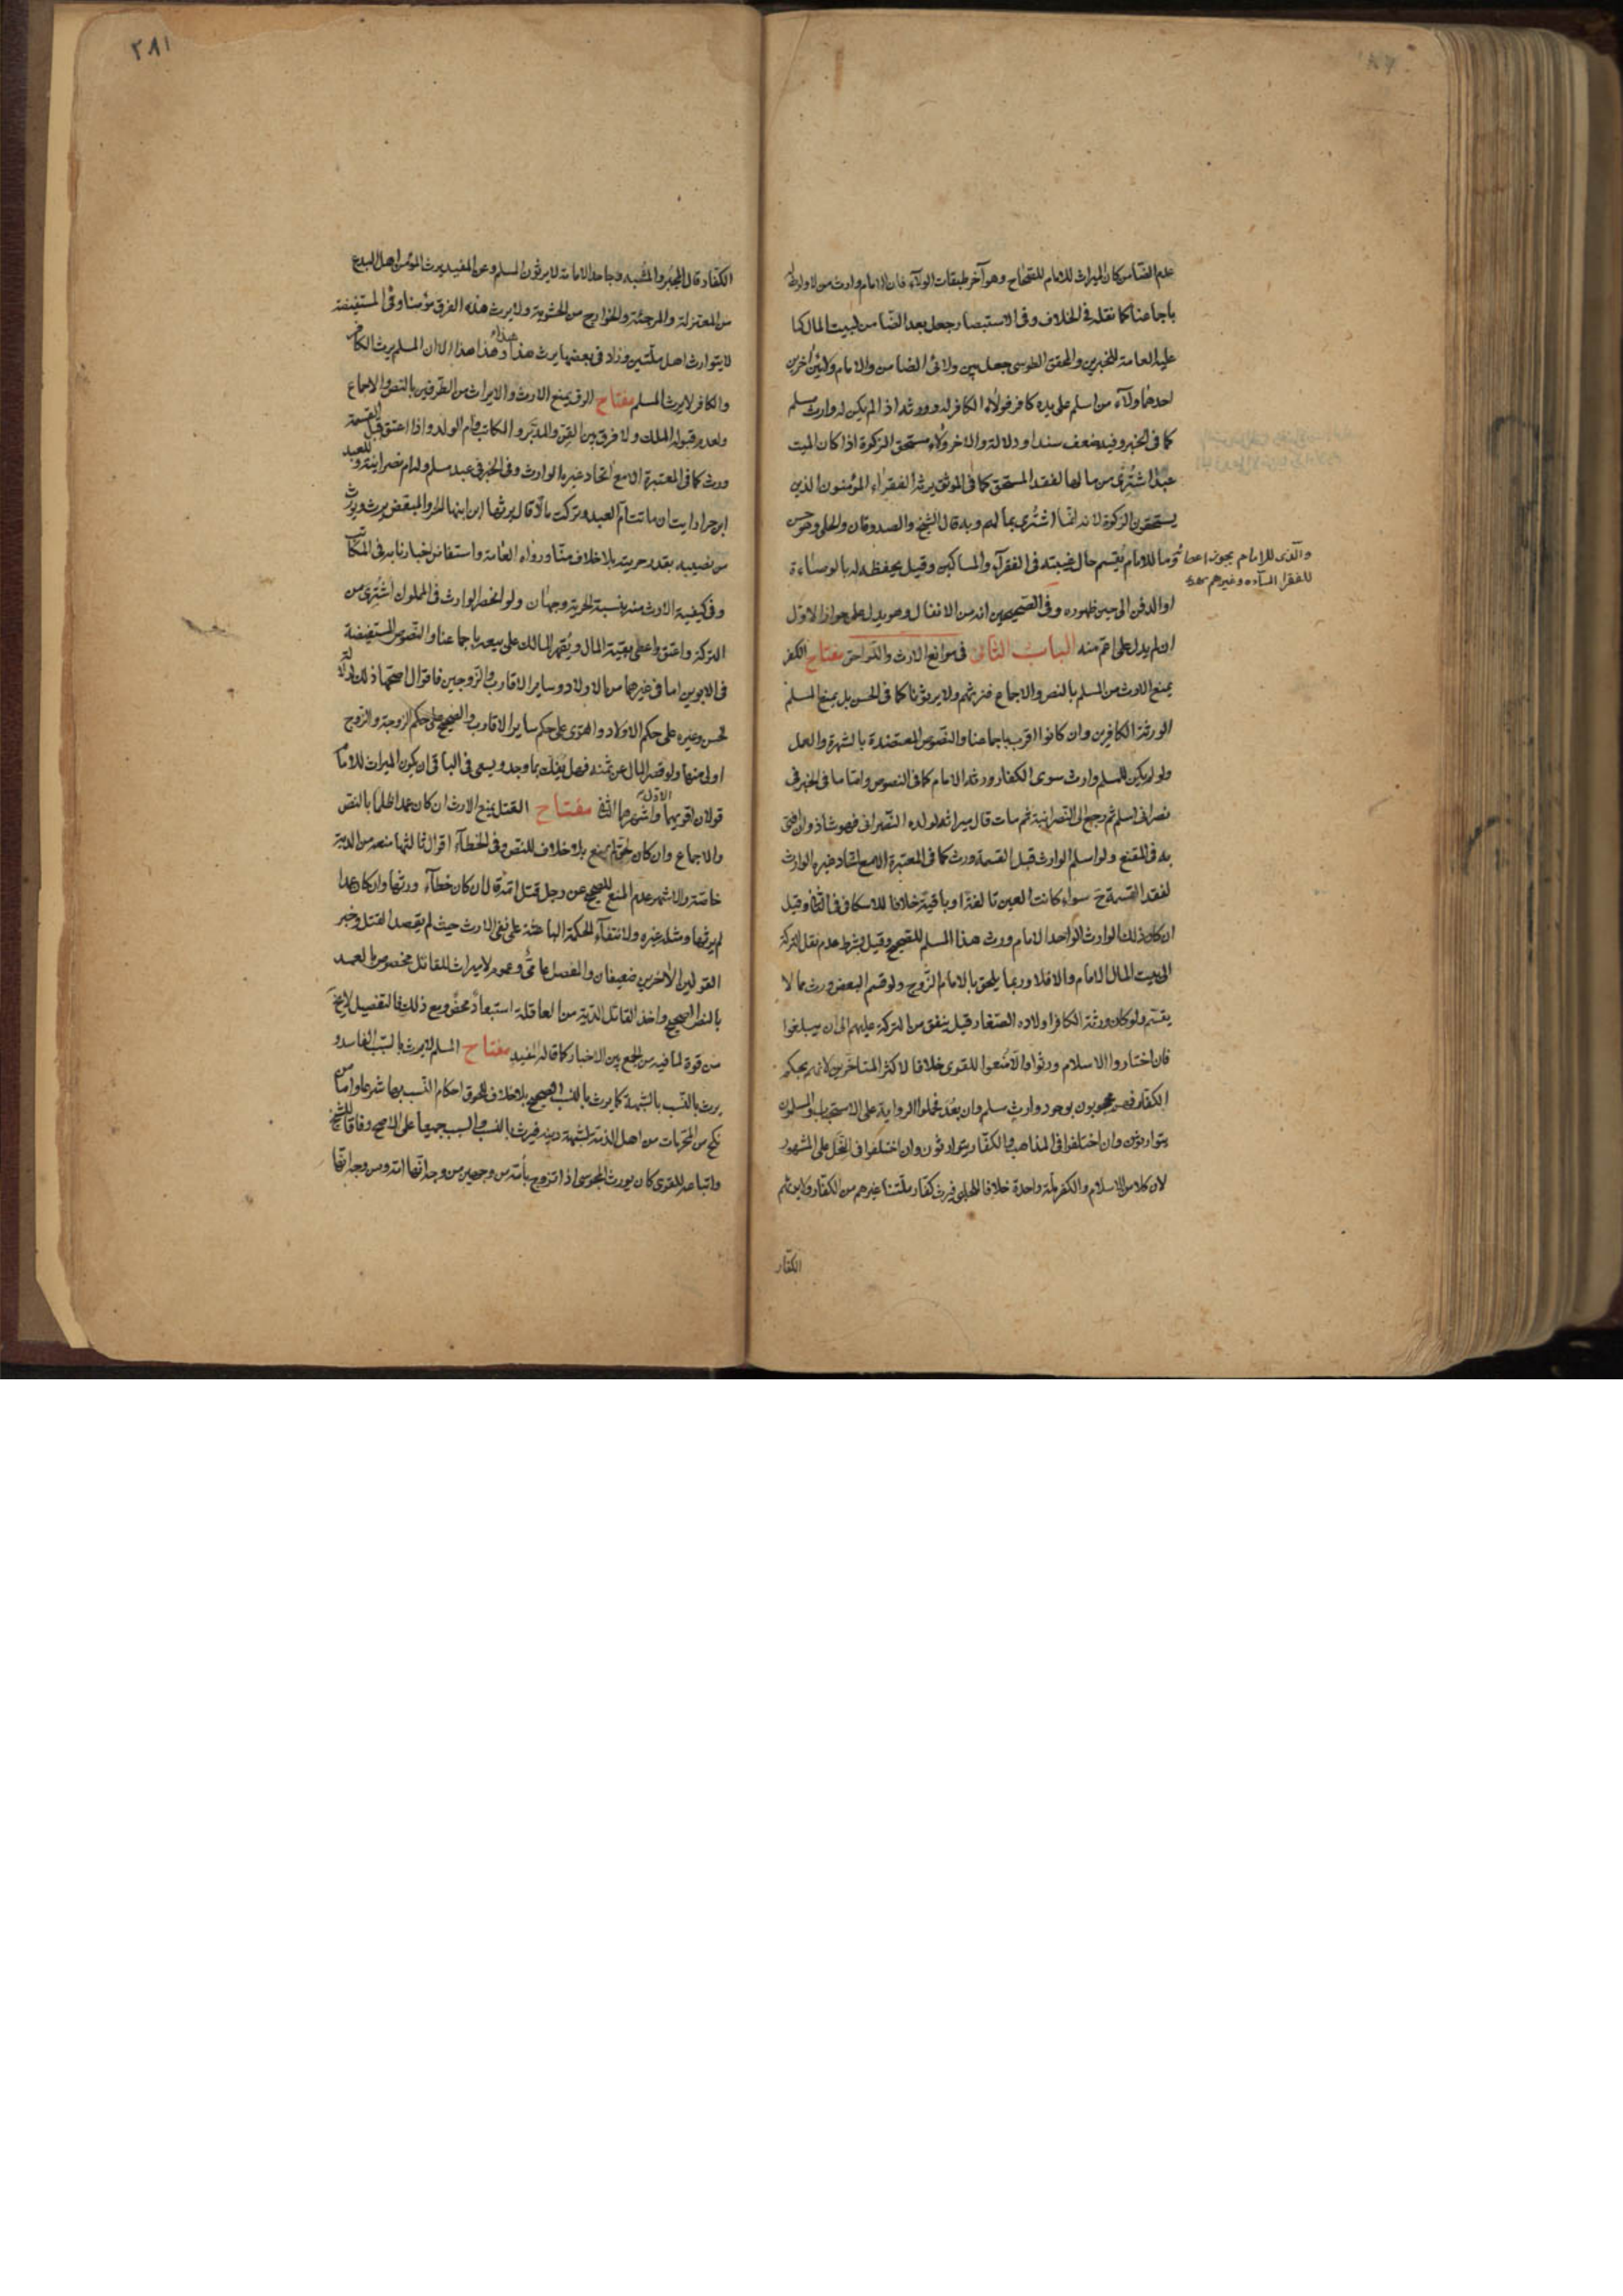 عدم الضامن كان الميراث للامام للصحاح وهو آخر طبقات الولاء فان الامام وارث من لا وارث له
باجماعنا كما نقله في الخلاف وفي الاستبصار جعل بعد الضامن لبيت المال كما
عليه العامة للخبرين والمحقق الطوسي جعل بين ولائي الضامن والامام ولائين آخرين
احدهما ولاء من اسلم على يده كافر فولاء الكافر له وورثه اذا لم يكن له وارث مسلم
كما في الخبر وفيه ضعف سندا ودلالة والآخر ولاء مستحق الزكوة اذا كان الميت
عبدا اشترى من مالها لفقد المستحق كما في الموثق يرثه الفقراء المؤمنون الذين
يستحقون الزكوة لانه انما اشترى بمالهم وبه قال الشيخ والصدوقان والحلي وهو حسن
وما للامام يقسم حال غيبته في الفقراء والمساكين وقيل يحفظ له بالوصاءة
والذى للامام يجوز اعطا
للفقرا السادة وغيرهم
او الدفن الى حين ظهوره وفي الصحيحين انه من الانفال وهو يدل على جواز الاول
ان لم يدل على اعم منه الباب الثاني في موانع الارث واللواحق مفتاح الكفر
يمنع الارث من المسلم بالنص والاجماع فنرثهم ولا يرثونا كما في الحسن بل يمنع المسلم
الورثة الكافرين وان كانوا اقرب باجماعنا والنصوص المعتضدة بالشهرة والعمل
ولو لم يكن للمسلم وارث سوى الكفار ورثه الامام كما في النصوص واما ما في الخبر في
نصراني اسلم ثم رجع الى النصرانية ثم مات قال ميراثه لولده النصراني فهو شاذ وان افتى
به في المقنع ولو اسلم الوارث قبل القسمة ورث كما في المعتبرة الا مع اتحاد غيره الوارث
لفقد القسمة ح سواء كانت العين تالفة او باقية خلافا للاسكافي في الثاني وقيل
ان كان ذلك الوارث الواحد الامام ورث هذا المسلم للصحيح وقيل بشرط عدم نقل التركة
الى بيت المال الامام والا فلا وربما يلحق بالامام الزوج ولو قسم البعض ورث مما لا
يقسم ولو كان ورثة الكافر اولاده الصغار قيل ينفق من التركة عليهم الى ان يبلغوا
فان اختاروا الاسلام ورثوا والا منعوا للقوى خلافا لاكثر المتاخرين لانهم بحكم
الكفار فهم محجوبون بوجود وارث مسلم وان بعد فحملوا الرواية على الاستحباب والمسلمون
يتوارثون وان اختلفوا في المذاهب والكفار يتوارثون وان اختلفوا في النحل على المشهور
لان كلا من الاسلام والكفر ملة واحدة خلافا للحلبي فيرث كفار ملتنا غيرهم من الكفار ولا يرثهم
الكفار
٢٨١
الكفار قال المجبر والمشبه وجاحد الامامة لا يرثون المسلم وعن المفيد يرث المؤمن اهل البدع
من المعتزلة والمرجئة والخوارج من الحشوية ولا يرث هذه الفرق مؤمنا وفي المستفيضة
لا يتوارث اهل ملتين وزاد في بعضها يرث هذا هذا وهذا هذا الا ان المسلم يرث الكافر
والكافر لا يرث المسلم مفتاح الرق يمنع الارث والايراث من الطرفين بالنص والاجماع
ولعدم قبوله الملك ولا فرق بين القن والمدبر والمكاتب وام الولد واذا اعتق قبل القسمة
ورث كما في المعتبرة الا مع اتحاد غيره الوارث وفي الخبر في عبد مسلم وله ام نصرانية وللعبد
ابن حر ارايت ان ماتت ام العبد وتركت مالا قال يرثها ابن ابنها الحر والمبعض يرث ويورث
من نصيبه بقدر حريته بلا خلاف منا ورواه العامة واستفاض اخبارنا به في المكاتب
وفي كيفية الارث منه بنسبة الحرية وجهان ولو انحصر الوارث في المملوك اشترى من
التركة واعتق واعطى بقية المال ويقهر المالك على بيعه باجماعنا والنصوص المستفيضة
في الابوين اما في غيرهما من الاولاد وساير الاقارب والزوجين فاقوال اصحها ذلك لدلالة
الحسن وغيره على حكم الاولاد والقوى على حكم ساير الاقارب والصحيح على حكم الزوجة والزوج
اولى منها ولو قصر المال عن ثمنه فهل يفك بما وجد ويسعى في الباقي ان يكون الميراث للامام
قولان اقويهما الاول واشهرهما الثاني مفتاح القتل يمنع الارث ان كان عمدا ظلما بالنص
والاجماع وان كان بحق لم يمنع بلا خلاف للنص وفي الخطاء اقوال ثالثها منعه من الدية
خاصة والاشهر عدم المنع للصحيح عن رجل قتل امه قال ان كان خطاء ورثها وان كان عمدا
لم يرثها ومثله غيره ولانتفاء الحكمة الباعثة على نفي الارث حيث لم يقصد القتل وخبر
القولين الآخرين ضعيفان والفضل عامي وعموم لا ميراث للقاتل مخصوص بالعمد
بالنص الصحيح واخذ القاتل الدية من العاقلة استبعاد محض ومع ذلك فالتفصيل لا يخ
من قوة لما فيه من الجمع بين الاخبار كما قاله المفيد مفتاح المسلم لا يرث بالسبب الفاسد و
يرث بالنسب بالشبهة كما يرث بالنسب الصحيح بلا خلاف للحوق احكام النسب بها شرعا واما من
نكح من المحرمات من اهل الذمة لشبهة دينه فيرث بالنسب والسبب جميعا على الاصح وفاقا للشيخ
واتباعه للقوى كان يورث المجوسي اذا تزوج بامه من وجهين من وجه انها امه ومن وجه انها